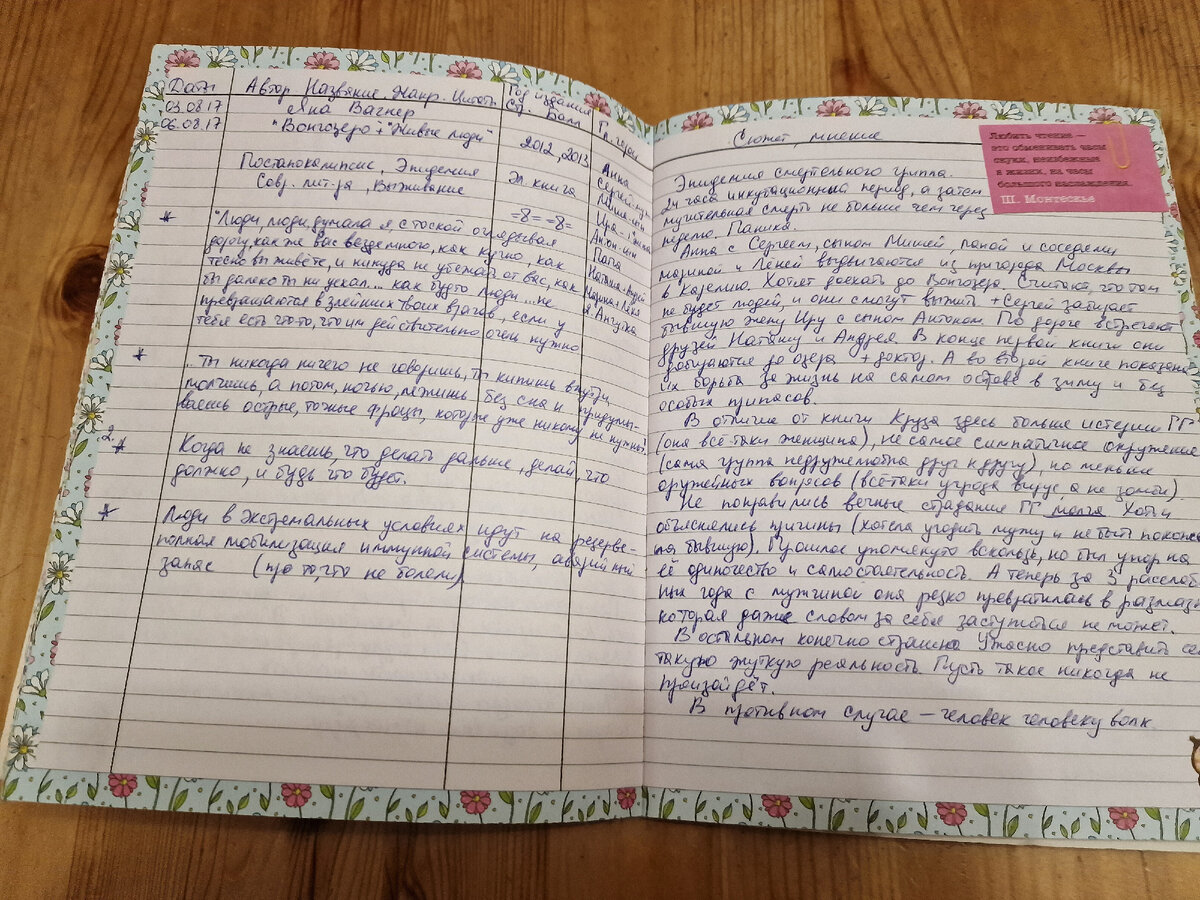 Дата
Автор. Название. Жанр. Цитаты
Год издания
Стр. Балл
Гл. герои
03.08.17
06.08.17
Яна Вагнер
"Вонгозеро" + "Живые люди"
2012, 2013
Постапокалипсис, Эпидемия
Эл. книга
Совр. лит-ра, Выживание
=8= =8=
Анна
Сергей-муж
Миша-сын
Ира-
Антон-сын
Папа
Наташа+Андрей
Марина+Лёня
* "Люди, люди, думала я, с тоской оглядывая
дорогу, как же вас везде много, как кучно, как
тесно вы живёте, и никуда не убежать от вас, как
бы далеко ты ни уехал... как будто люди... не
превращаются в злейших твоих врагов, если у
тебя есть что-то, что им действительно очень нужно
* ..Ты никогда ничего не говоришь, ты кипишь внутри
молчишь, а потом, ночью, лежишь без сна и придумы-
ваешь острые, точные фразы, которые уже никому не нужны.
2. * Когда не знаешь, что делать дальше, делай, что
должно, и будь что будет.
* Люди в экстремальных условиях идут на резерве-
полная мобилизация иммунной системы, аварийный
запас (про то, что не болели)
Сюжет, мнение
Любить чтение —
это обменивать часы
скуки, неизбежные
в жизни, на часы
большого наслаждения.
Ш. Монтескье
Эпидемия смертельного гриппа.
24 часа инкутационный период, а затем
мучительная смерть не больше чем через
неделю. Паника.
Анна с Сергеем, сыном Мишей, папой и соседями
Мариной и Лёней выдвигаются из пригорода Москвы
в Карелию. Хотят доехать до Вонгозера. Считают, что там
не будет людей, и они смогут выжить. + Сергей забирает
бывшую жену Иру с сыном Антоном. По дороге встречают
друзей Наташу и Андрея. В конце первой книги они
добираются до озера + доктор. А во второй книге показана
их борьба за жизнь на самом острове в зиму и без
особых припасов.
В отличие от книги Круза здесь больше истерии ГГ
(она всё-таки женщина), не самое симпатичное окружение
(сама группа недружелюбна друг к другу), но меньше
оружейных вопросов (всё-таки угроза вирус, а не зомби).
Не понравились вечные страдание ГГ молча. Хотя и
объяснялись причины (хотела угодить мужу и не быть похожей
на бывшую). Прошлое упомянуто вскользь, но был упор на
её одиночество и самостоятельность. А теперь за 3 расслаб
ных года с мужчиной она резко превратилась в размазн
которая даже словом за себя заступиться не может.
В остальном конечно страшно. Ужасно представить се
такую жуткую реальность. Пусть такое никогда не
произойдёт.
В противном случае — человек человеку волк.